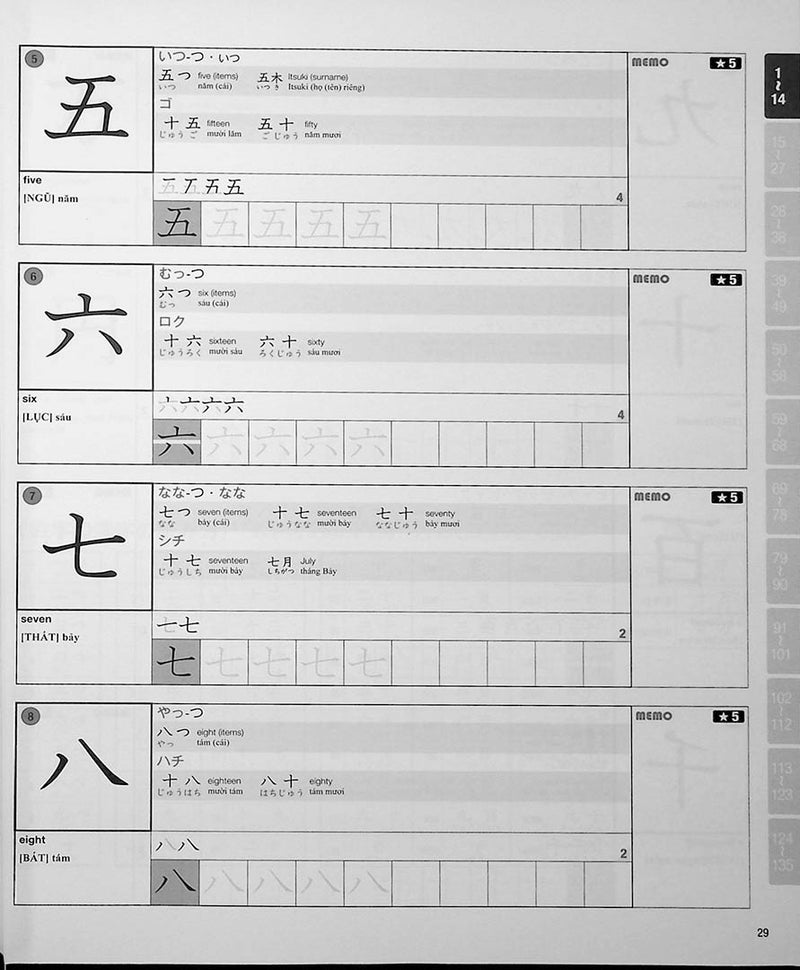 5
五
いつ-つ・いつ
五つ five (items) 五木 Itsuki (surname)
いつ năm (cái) いつき Itsuki (họ (tên) riêng)
ゴ
十五 fifteen 五十 fifty
じゅうご mười lăm ごじゅう năm mươi
MEMO ★5
five
[NGŨ] năm
4
五 五 五 五 五
6
六
むっ-つ
六つ six (items)
むっ sáu (cái)
ロク
十六 sixteen 六十 sixty
じゅうろく mười sáu ろくじゅう sáu mươi
MEMO ★5
six
[LỤC] sáu
4
六 六 六 六 六
7
七
なな-つ・なな
七つ seven (items) 十七 seventeen 七十 seventy
なな bảy (cái) じゅうなな mười bảy ななじゅう bảy mươi
シチ
十七 seventeen 七月 July
じゅうしち mười bảy しちがつ tháng Bảy
MEMO ★5
seven
[THẤT] bảy
七
2
七 七 七 七 七
8
八
やっ-つ
八つ eight (items)
やっ tám (cái)
ハチ
十八 eighteen 八十 eighty
じゅうはち mười tám はちじゅう tám mươi
MEMO ★5
eight
[BÁT] tám
八
2
八 八 八 八 八
1
~
14
15
~
27
28
~
38
39
~
49
50
~
58
59
~
68
69
~
78
79
~
90
91
~
101
102
~
112
113
~
123
124
~
135
29